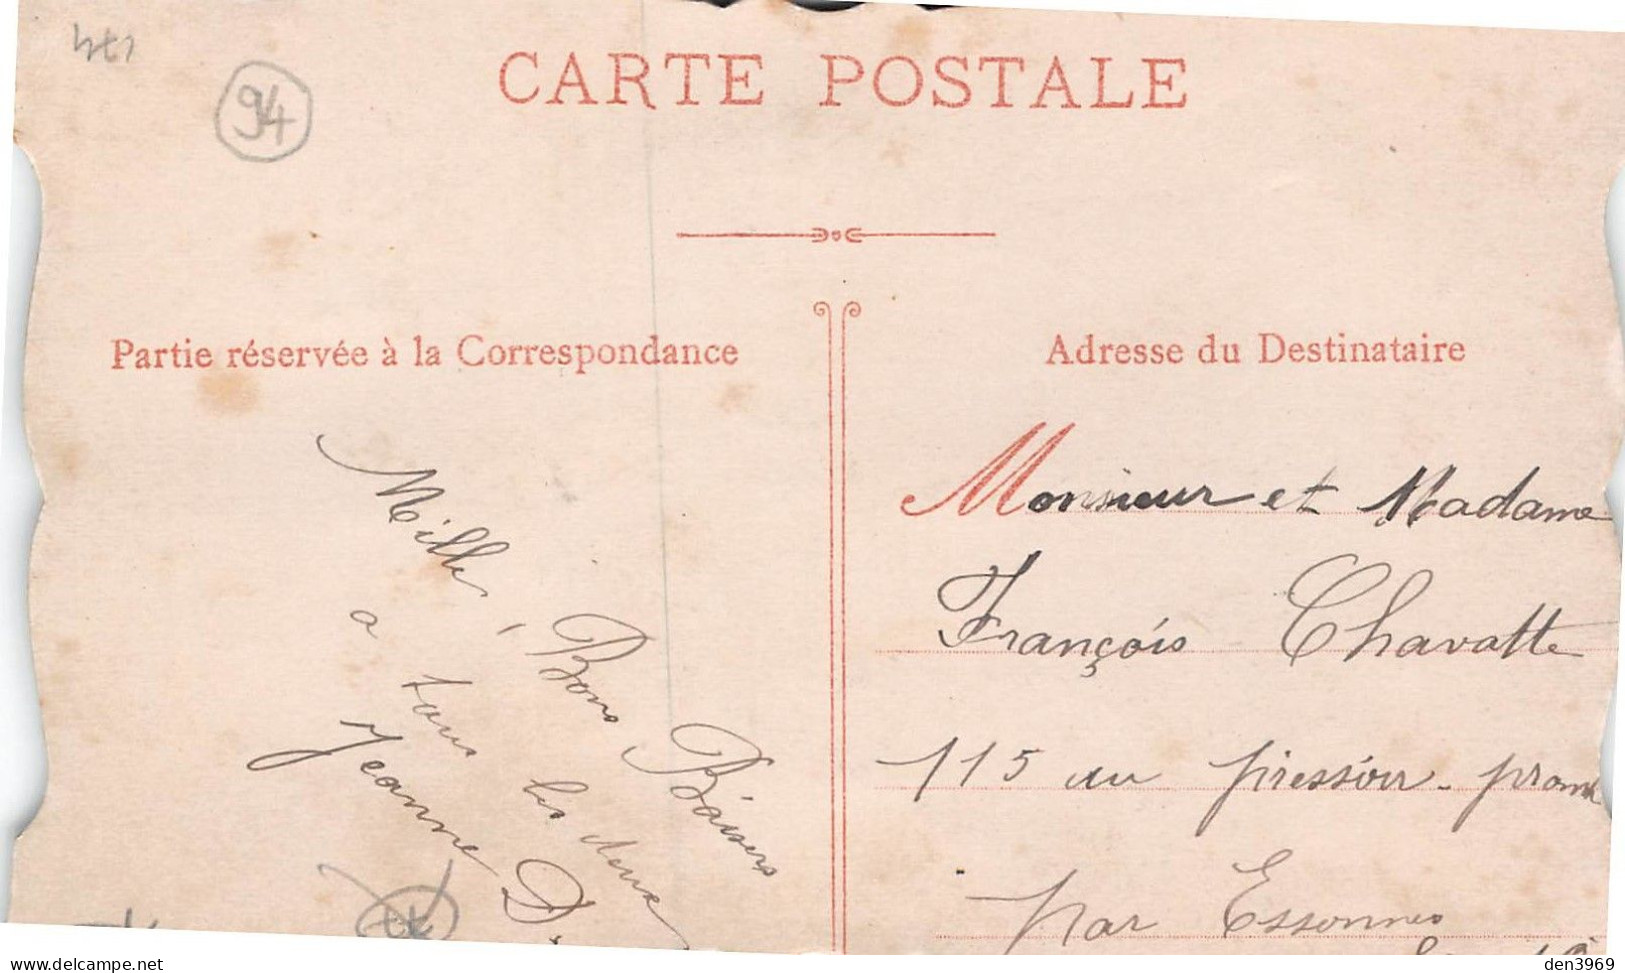 94
CARTE POSTALE
Partie réservée à la Correspondance
Mille, Bons Baisers
a tous les deux
Jeanne D
Adresse du Destinataire
Monsieur et Madame
François Chavatte
115 au pressoir-prom
par Essonnes
den3969